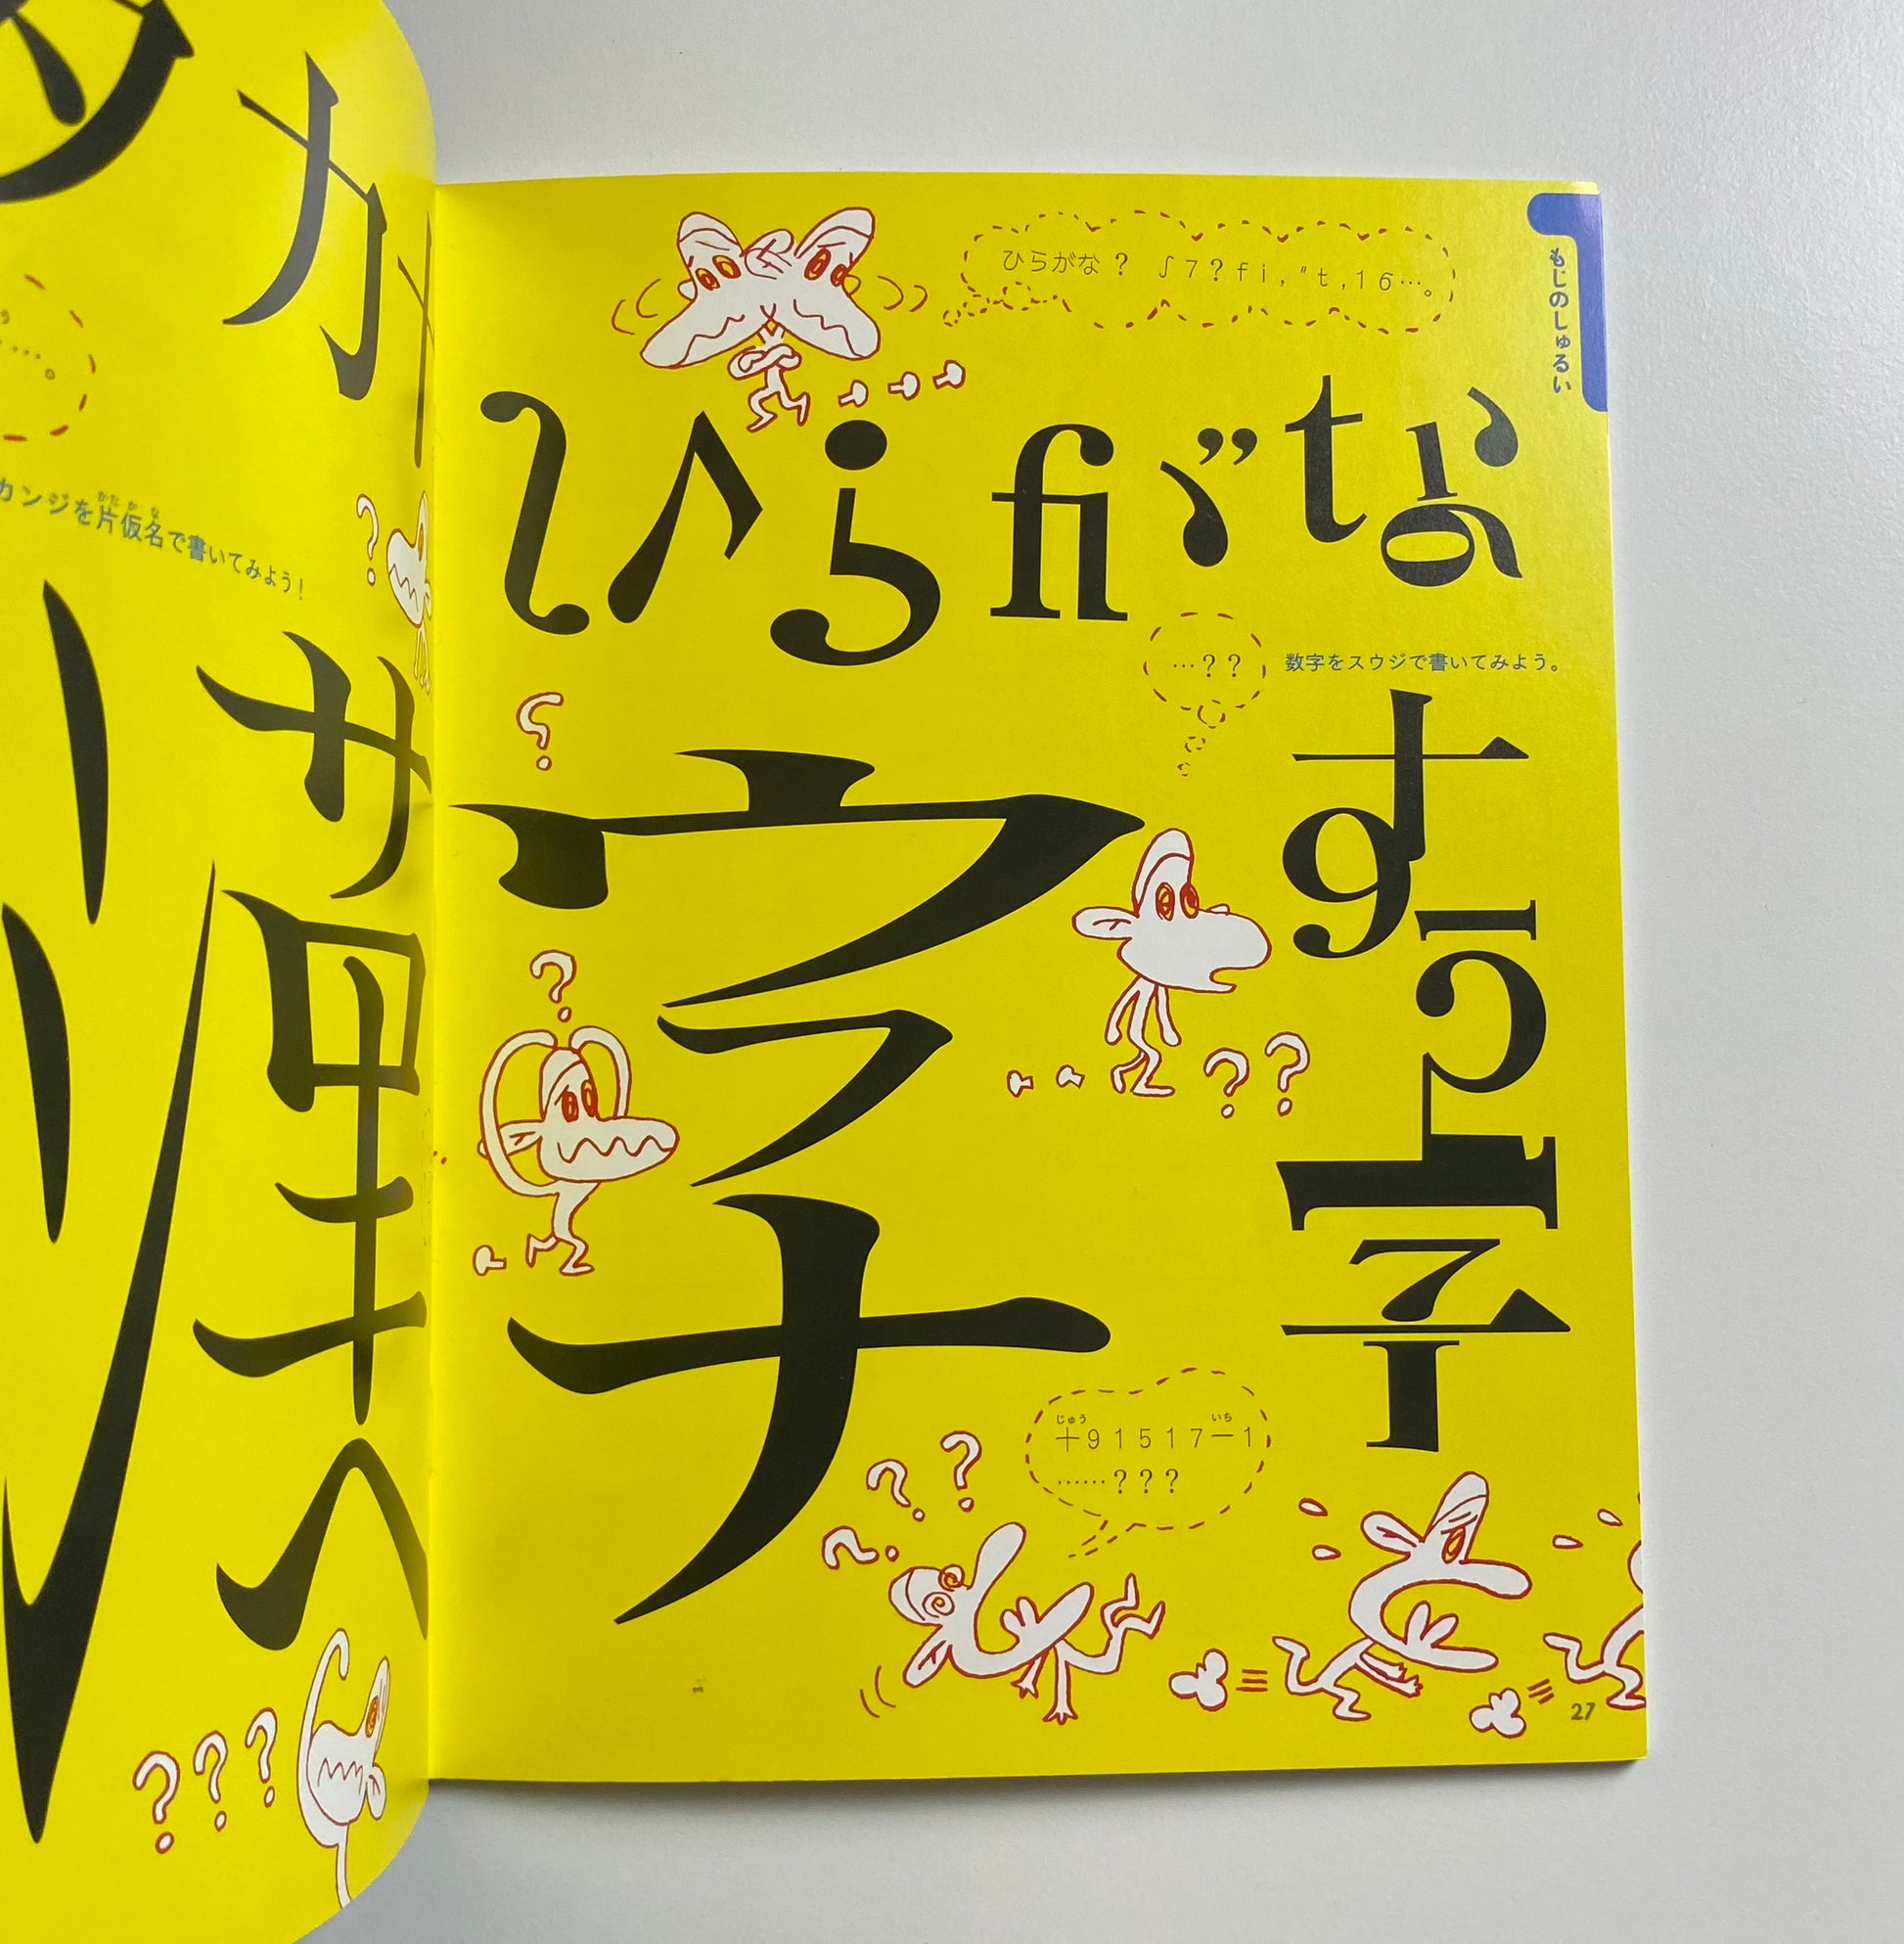 ひらがな？ ∫7？fi,"t,16…。
もじのしゅるい
ひらがな
…？？
数字をスウジで書いてみよう。
ウ
フ
ナ
数字
じゅう いち
十91517一1
……？？？
27
カンジを片仮名で書いてみよう！
かたかな
カ
サ